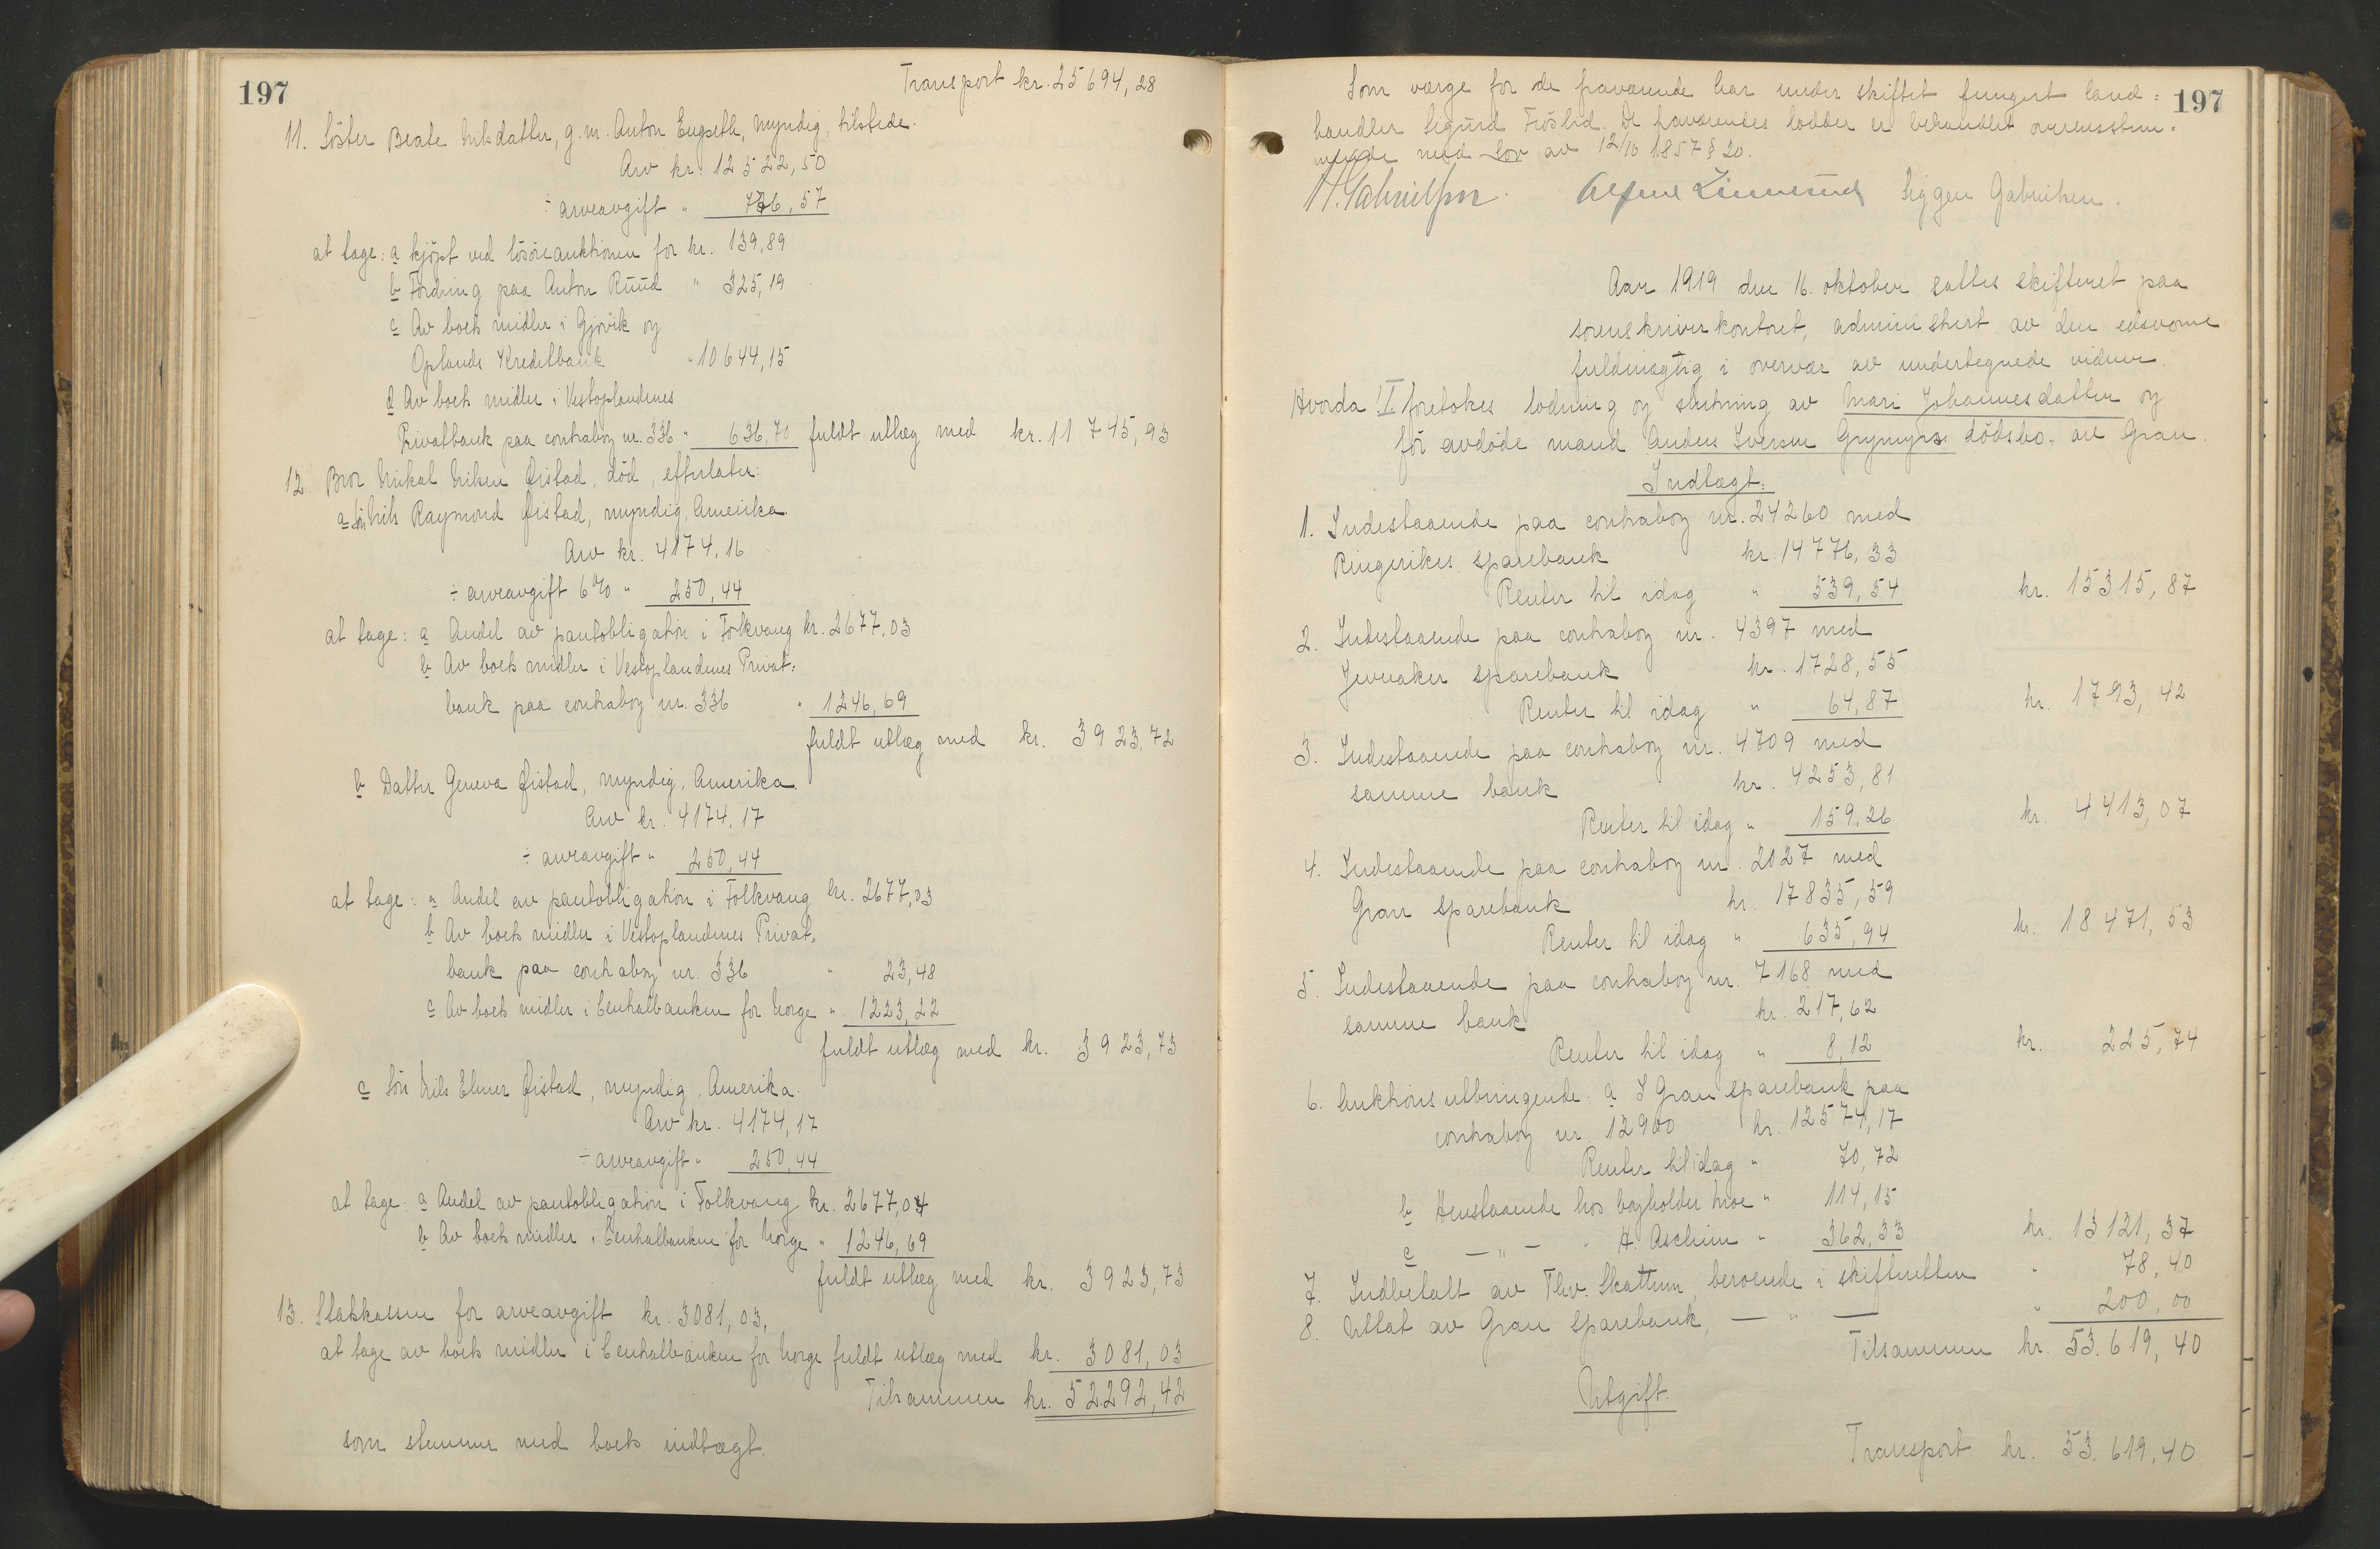 197
Transport kr. 25 694,28
11. Söster Beate Nilsdatter, g.m. Anton Engseth, myndig, tilstede.
Arv kr. 12 522,50
÷ arveavgift " 776,57
at tage: a kjöpt ved lösöreauktionen for kr. 139,89
b Fordring paa Anton Ruud " 325,19
c Av boets midler i Gjövik og
Oplands Kreditbank " 10 644,15
d Av boets midler i Vestoplandenes
Privatbank paa contrabog nr. 336 " 636,70 fuldt utlæg med kr. 11 745,93
12. Bror Mikal Nilsen Øistad, död, efterlater:
a Sön Nils Raymond Øistad, myndig, Amerika.
Arv kr. 4174,16
÷ arveavgift 6% " 250,44
at tage: a Andel av pantobligation i Folkvang kr. 2677,03
b Av boets midler i Vestoplandenes Privat=
bank paa contrabog nr. 336 " 1246,69
fuldt utlæg med kr. 3923,72
b Datter Geneva Øistad, myndig, Amerika.
Arv kr. 4174,17
÷ arveavgift " 250,44
at tage: a Andel av pantobligation i Folkvang kr. 2677,03
b Av boets midler i Vestoplandenes Privat=
bank paa contrabog nr. 336 " 23,48
c Av boets midler i Centralbanken for Norge " 1223,22
fuldt utlæg med kr. 3923,73
c Sön Nils Elmer Øistad, myndig, Amerika.
Arv kr. 4174,17
÷ arveavgift " 250,44
at tage: a Andel av pantobligation i Folkvang kr. 2677,04
b Av boets midler i Centralbanken for Norge " 1246,69
fuldt utlæg med kr. 3923,73
13. Statskassen for arveavgift kr. 3081,03,
at tage av boets midler i Centralbanken for Norge fuldt utlæg med kr. 3081,03
Tilsammen kr. 52292,42
som stemmer med boets indtægt.
197
Som værge for de fraværende har under skiftet fungert land=
handler Sigurd Fröslid. De fraværendes lodder er behandlet overensstem=
mende med lov av 12/10 1857 § 20.
H. Gabrielsen. Siggen Gabrielsen.
Aar 1919 den 16. oktober sattes skifteret paa
sorenskriverkontoret, administrert av den edsvorne
fuldmægtig i overvær av undertegnede vidner.
Hvorda I foretokes lodning og slutning av Mari Johannesdatter og
för avdöde mand Anders Iversen Grymyrs dödsbo, av Gran.
Indtægt:
1. Indestaaende paa contrabog nr. 24260 med
Ringerikes sparebank kr. 14 776,33
Renter til idag " 539,54 kr. 15315,87
2. Indestaaende paa contrabog nr. 4397 med
Jevnaker sparebank kr. 1728,55
Renter til idag " 64,87 kr. 1793,42
3. Indestaaende paa contrabog nr. 4709 med
samme bank kr. 4253,81
Renter til idag " 159,26 kr. 4413,07
4. Indestaaende paa contrabog nr. 2127 med
Gran sparebank kr. 17835,59
Renter til idag " 635,94 kr. 18471,53
5. Indestaaende paa contrabog nr. 7168 med
samme bank kr. 217,62
Renter til idag " 8,12 kr. 225,74
6. Auktionsutbringende: a I Gran sparebank paa
contrabog nr. 12900 kr. 12574,17
Renter til idag " 70,72
b Henstaaende hos bogholder Moe " 114,15
c — " — " A. Aschim " 362,33 kr. 13121,37
7. Indbetalt av Thv. Skattum, beroende i skifteretten " 78,40
8. Uttat av Gran sparebank, — " — " 200,00
Tilsammen kr. 53.619,40
Utgift.
Transport kr. 53.619,40